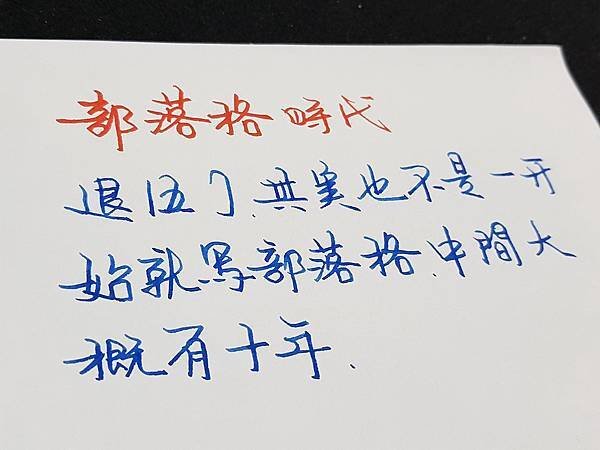 部落格時代
退伍了.其實也不是一开
始就写部落格.中間大
概有十年.